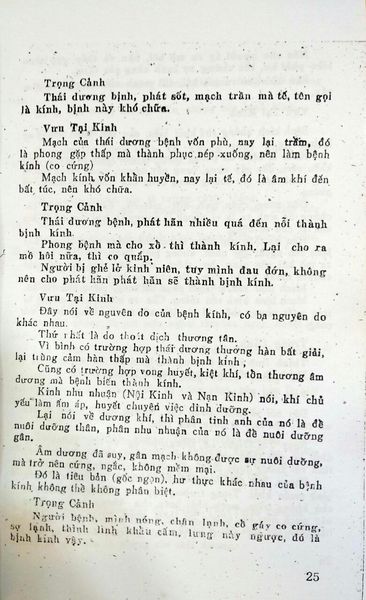 Trọng Cảnh
Thái dương bịnh, phát sốt, mạch trần mà tế, tên gọi
là kính, bịnh này khó chữa.
Vưu Tại Kinh
Mạch của thái dương bệnh vốn phù, nay lại trầm, đó
là phong gặp thấp mà thành phục nép xuống, nên làm bệnh
kính (co cứng)
Mạch kính vốn khẩn huyền, nay lại tế, đó là âm khí đến
bất túc, nên khó chữa.
Trọng Cảnh
Thái dương bệnh, phát hãn nhiều quá đến nỗi thành
bịnh kính.
Phong bệnh mà cho xổ thì thành kính. Lại cho ra
mồ hôi nữa, thì co quắp.
Người bị ghẻ lở kinh niên, tuy mình đau đớn, không
nên cho phát hãn phát hãn sẽ thành bịnh kính.
Vưu Tại Kinh
Đây nói về nguyên do của bệnh kính, có ba nguyên do
khác nhau.
Thứ nhất là do thoát dịch thương tân.
Vì bình có trường hợp thái dương thương hàn bất giải,
lại trùng cảm hàn thấp mà thành bịnh kính,
Cũng có trường hợp vong huyết, kiệt khí, tổn thương âm
dương mà bệnh biến thành kính.
Kinh nhu nhuận (Nội Kinh và Nạn Kinh) nói, khí chủ
yếu làm ấm áp, huyết chuyên việc dinh dưỡng.
Lại nói về dương khí, thì phần tinh anh của nó là để
nuôi dưỡng thần, phần nhu nhuận của nó là để nuôi dưỡng
gân.
Âm dương đã suy, gân mạch không được sự nuôi dưỡng,
mà trở nên cứng, ngắc, không mềm mại.
Đó là tiêu bản (gốc ngọn), hư thực khác nhau của bệnh
kính không thể không phân biệt.
Trọng Cảnh
Người bệnh, mình nóng, chân lạnh, cổ gáy co cứng,
sợ lạnh, thình lình khẩu cấm, lưng này ngược, đó là
bịnh kính vậy.
25